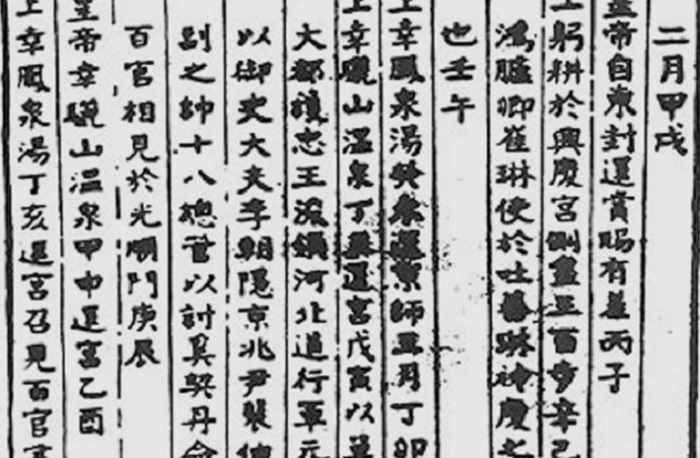 二月甲戌
皇帝自東封還賞賜有差丙子
上躬耕於興慶宮側盡三百步辛巳
鴻臚卿崔琳使於吐蕃琳神慶之
也壬午
上幸鳳泉湯癸未還京師五月丁卯
上幸驪山溫泉丁丑還宮戊寅以單
大都護忠王浚領河北道行軍元
以御史大夫李朝隱京兆尹裴伷
副之帥十八總管以討奚契丹命
百官相見於光順門庚辰
皇帝幸驪山溫泉甲申還宮乙酉
上幸鳳泉湯丁亥還宮召見百官